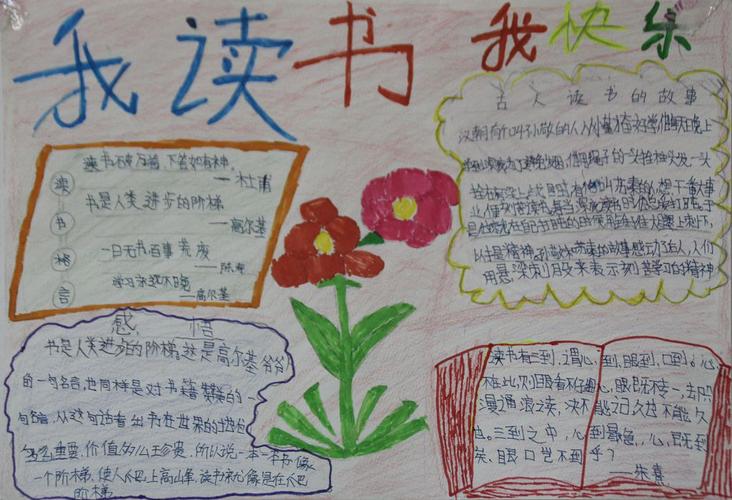 我读书 我快乐
读书格言
读书破万卷,下笔如有神。
——杜甫
书是人类进步的阶梯
——高尔基
一日无书百事荒废
——陈寿
学习永远不晚
——高尔基
感 悟
书是人类进步的阶梯。这是高尔基爷爷
的一句名言,也同样是对书籍赞美的一
句名言,从这句话看出书在世界的地位
多么重要,价值多么珍贵,所以说一本一本书像
一个阶梯,使人爬上高山峰,读书就像是在爬
阶梯
古人读书的故事
汉朝有个叫孙敬的人从小勤奋好学他每天晚上
绳子的一头拴住头发一头
拴在房梁上战国时
业,便刻苦读书每当
大腿上刺下,
以于是精神。孙敬和苏秦的故事感动了后人,人们
用悬梁刺股来表示刻苦学习的精神
读书有三到,谓心到,眼到,口到。心
不在此,则眼看不仔细,心眼既不专一,却只
漫浪诵读,决不能记,久也不能久
也。三到之中,心到最急,心既到
矣,眼口岂不到乎?
——朱熹